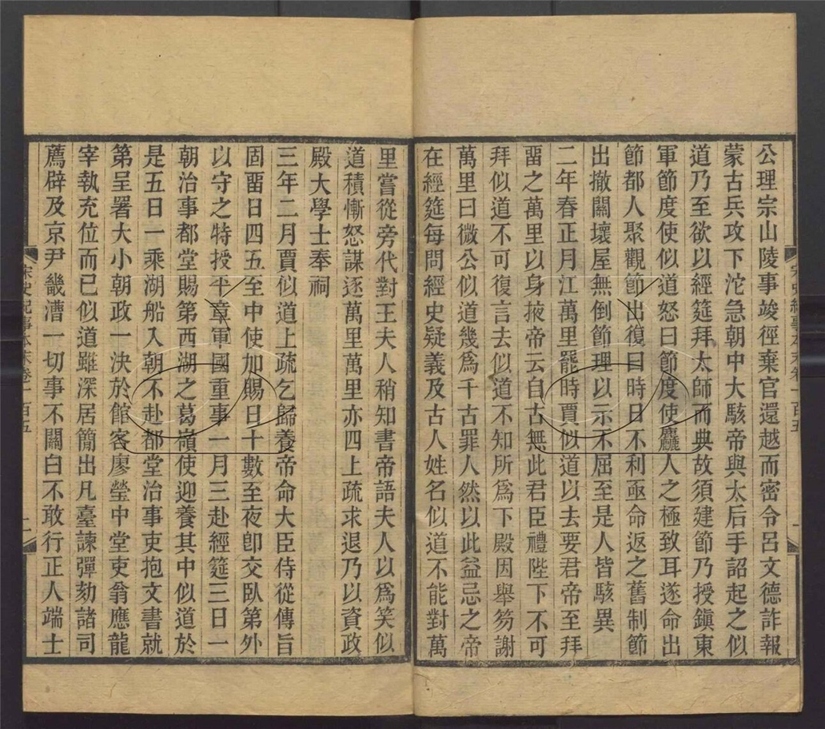 公理宗山陵事竣徑棄官還越而密令呂文德詐報
蒙古兵攻下沱急朝中大駭帝與太后手詔起之似
道乃至欲以經筵拜太師而典故須建節乃授鎮東
軍節度使似道怒曰節度使麤人之極致耳遂命出
節都人聚觀節出復曰時日不利亟命返之舊制節
出撤關壞屋無倒節理以示不屈至是人皆駭異
二年春正月江萬里罷時賈似道以去要君帝至拜
畱之萬里以身掖帝云自古無此君臣禮陛下不可
拜似道不可復言去似道不知所爲下殿因舉笏謝
萬里曰微公似道幾爲千古罪人然以此益忌之帝
在經筵每問經史疑義及古人姓名似道不能對萬
宋史紀事本末卷一百五
一
里嘗從旁代對王夫人稍知書帝語夫人以爲笑似
道積慚怒謀逐萬里萬里亦四上疏求退乃以資政
殿大學士奉祠
三年二月賈似道上疏乞歸養帝命大臣侍從傳旨
固畱日四五至中使加賜日十數至夜卽交臥第外
以守之特授平章軍國重事一月三赴經筵三日一
朝治事都堂賜第西湖之葛嶺使迎養其中似道於
是五日一乘湖船入朝不赴都堂治事吏抱文書就
第呈署大小朝政一決於館客廖瑩中堂吏翁應龍
宰執充位而已似道雖深居簡出凡臺諫彈劾諸司
薦辟及京尹畿漕一切事不關白不敢行正人端士
宋史紀事本末卷一百五
二